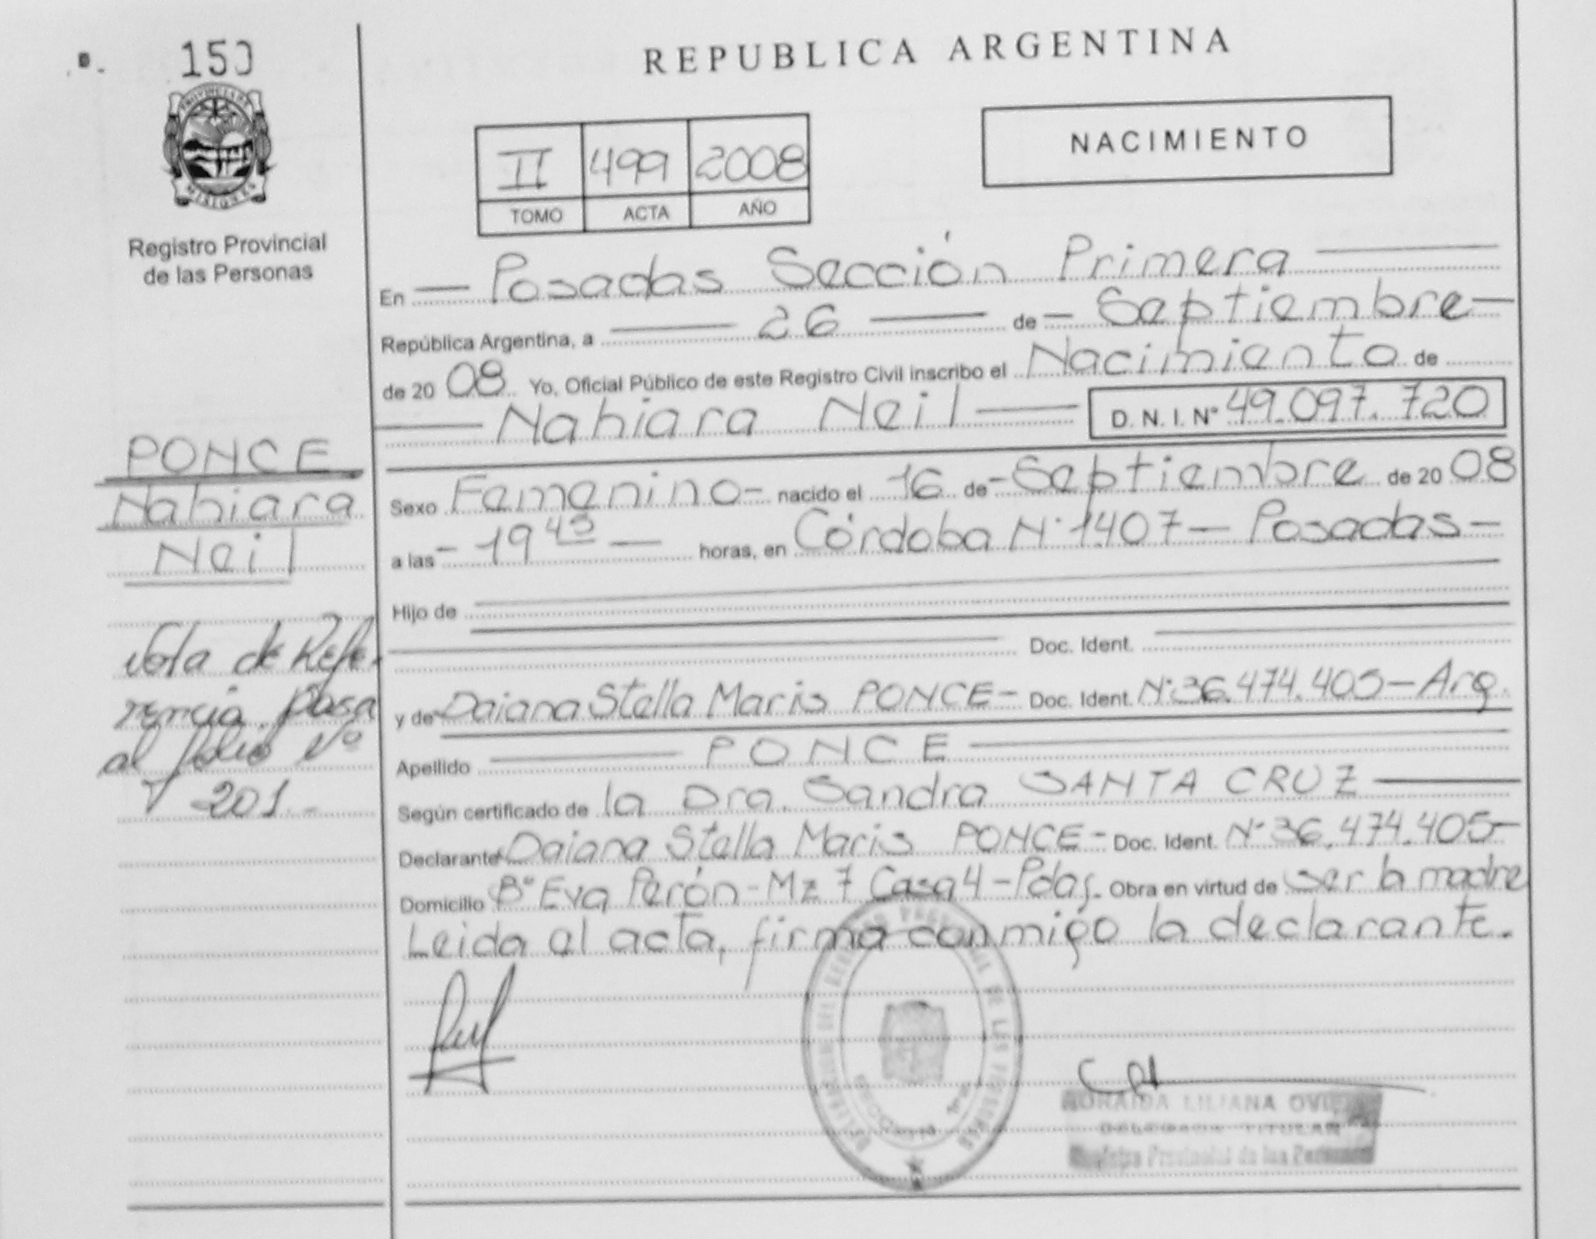 150
PROVINCIA DE
MISIONES
Registro Provincial
de las Personas
REPUBLICA ARGENTINA
NACIMIENTO
II 499 2008
TOMO ACTA AÑO
En Posadas Sección Primera
República Argentina, a 26 de Septiembre
de 20 08 Yo, Oficial Público de este Registro Civil inscribo el Nacimiento de
Nahiara Neil D. N. I. Nº 49.097.720
Sexo Femenino nacido el 16 de Septiembre de 20 08
a las 19 45 horas, en Córdoba Nº 1407 - Posadas
Hijo de
Doc. Ident.
y de Daiana Stella Maris PONCE - Doc. Ident. Nº 36.474.405 - Arg.
Apellido PONCE
Según certificado de la Dra. Sandra SANTA CRUZ
Declarante Daiana Stella Maris PONCE - Doc. Ident. Nº 36.474.405 -
Domicilio Bº Eva Perón - Mz 7 Casa 4 - Pdas. Obra en virtud de ser la madre
Leida al acta, firma conmigo la declarante.
PONCE
Nahiara
Neil
Nota de Refe-
rencia pasa
al folio Nº
201 -
LILIANA
DELEGADA TITULAR
Registro Provincial de las Personas